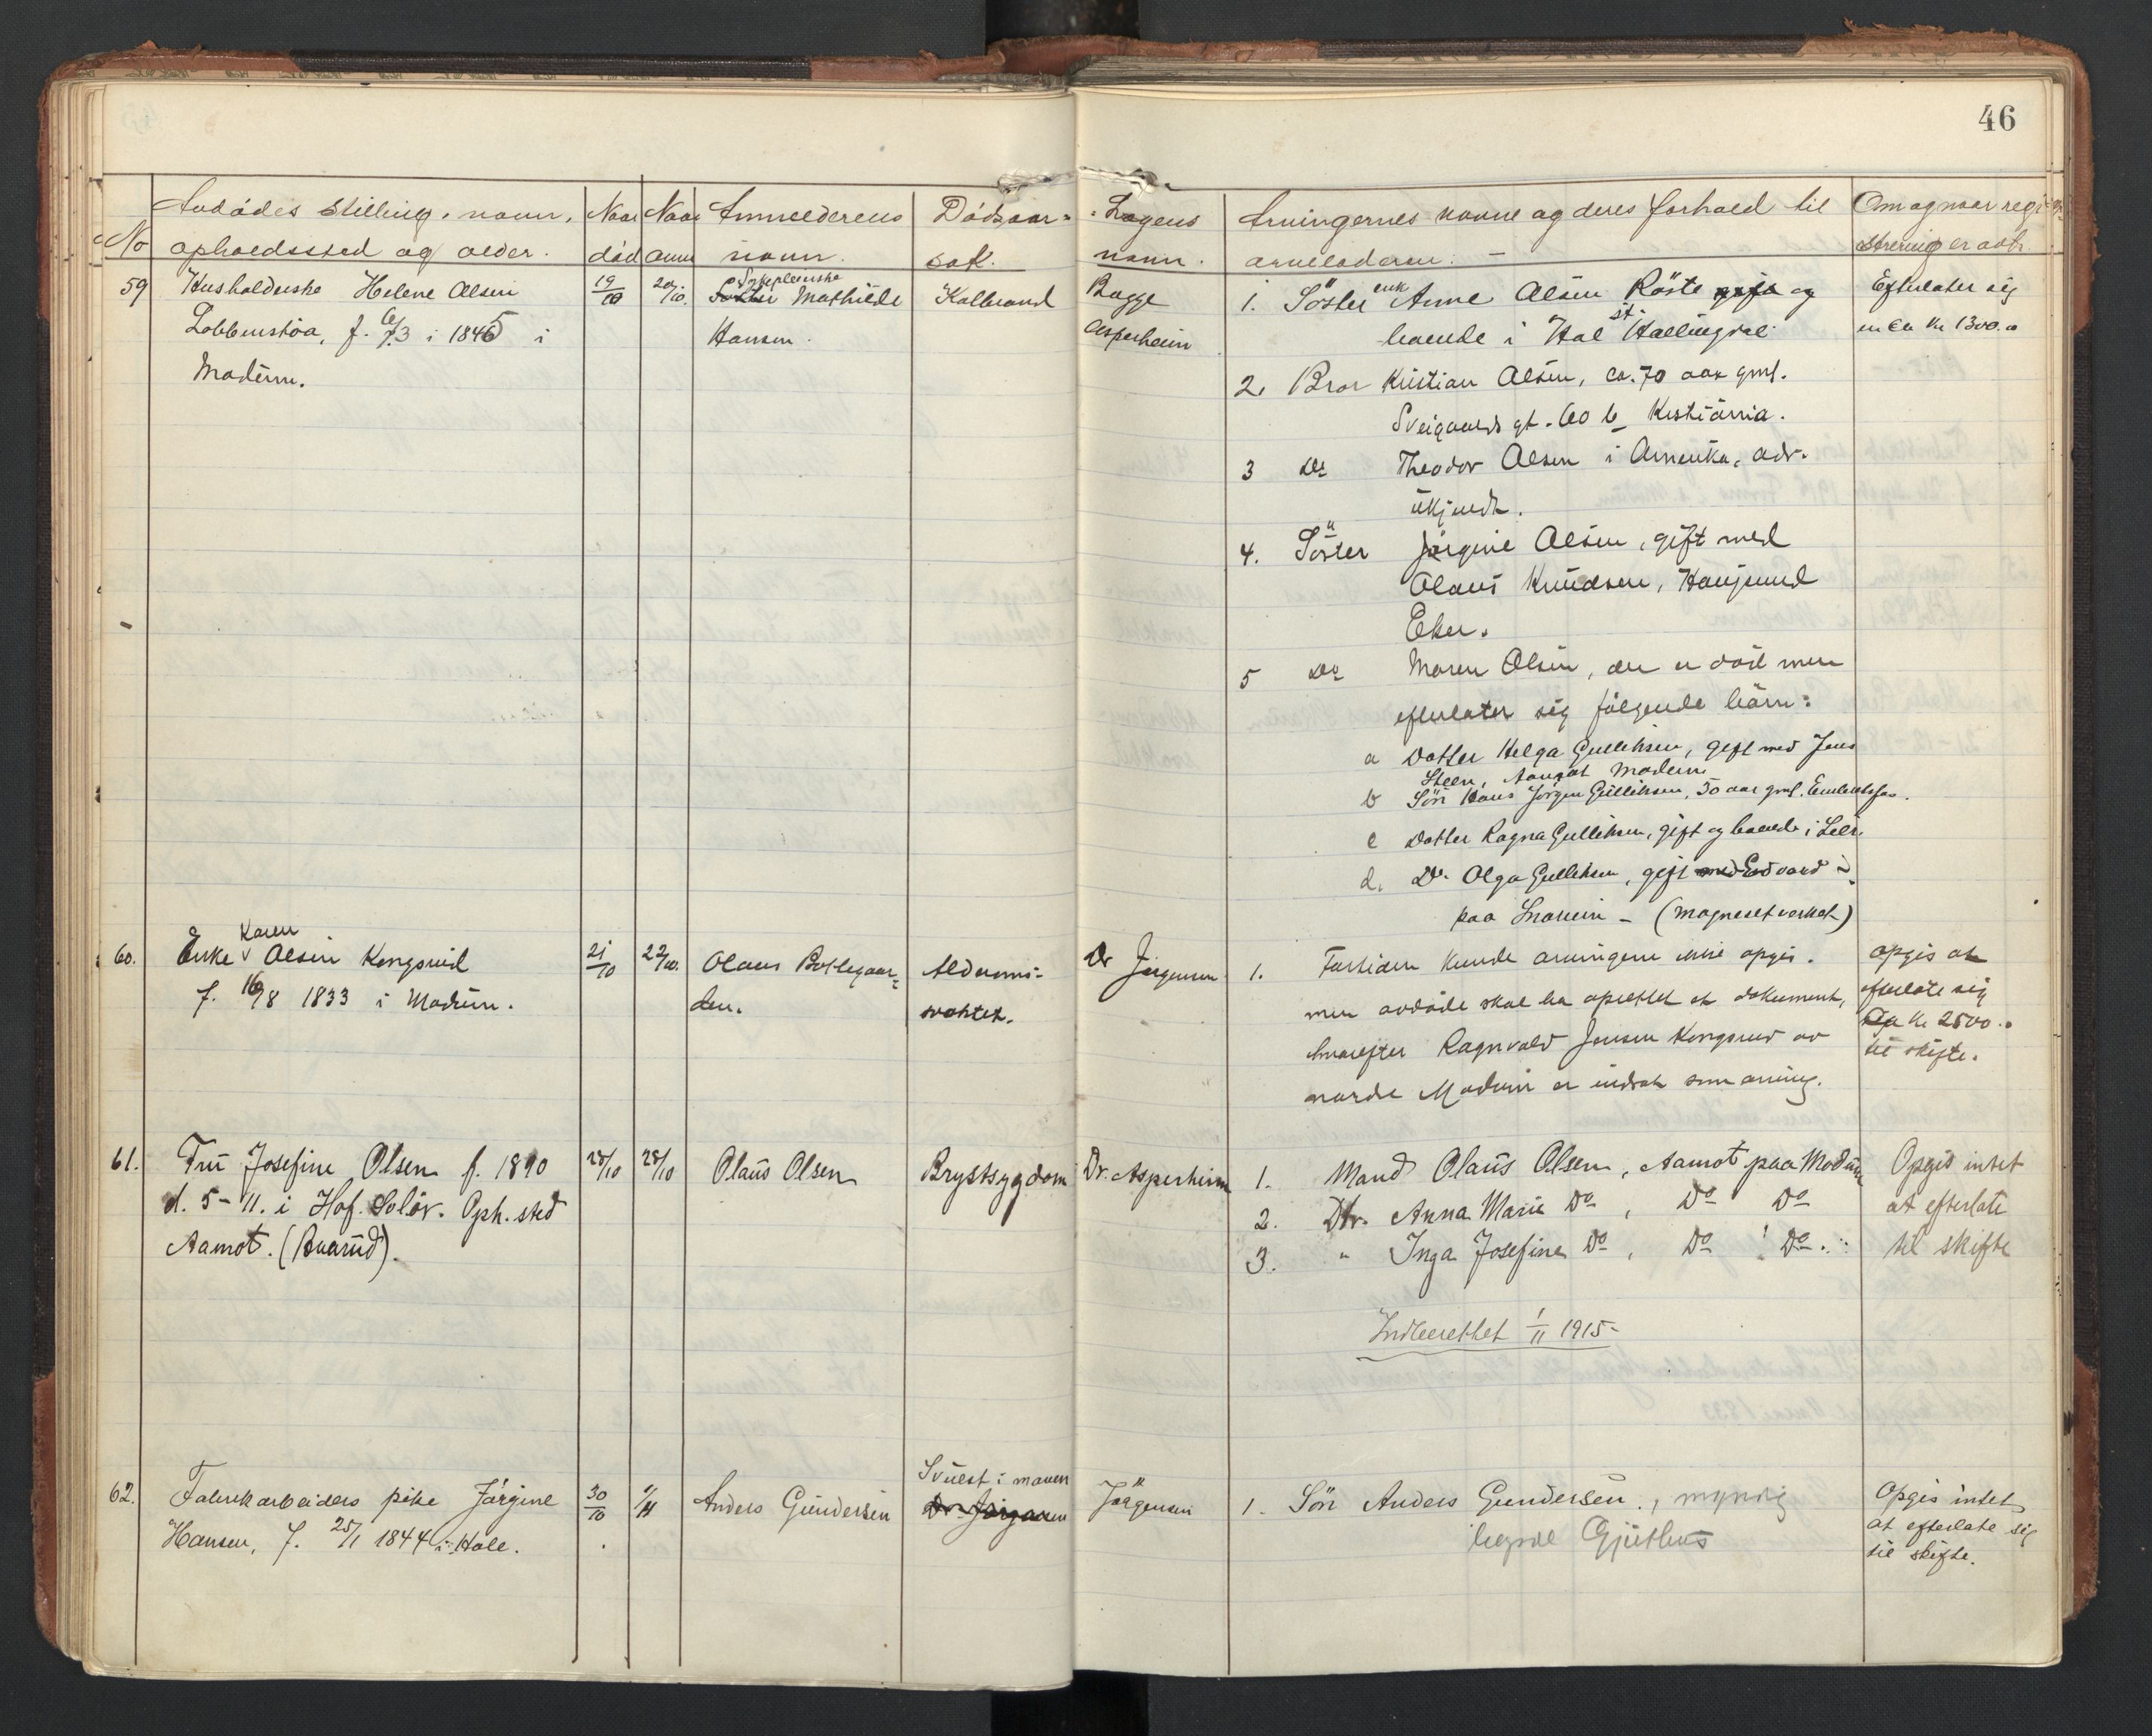 46
No
Avdødes stilling, navn,
opholdssted og alder.
Naar
død
Naar
anm
Anmelderens
navn.
Dødsaar-
sak.
Lægens
navn.
Arvingernes navne og deres forhold til
arveladeren. –
Om og naar regi-
strering er avh.
59
Husholderske Helene Olsen
Lobbenstøa, f. 6/3 i 1845 i
Modum.
19/10
20/10.
Sykepleierske
Mathilde
Hansen.
Kolbrand
Bugge
Asperheim
1. Søster enk Anne Olsen Røste og
boende i Hol st. Hallingdal
2. Bror Kristian Olsen, ca. 70 aar gml.
Sveigaards gt. 60 b Kristiania.
3 Do Theodor Olsen i Amerika, adr.
ukjendt.
4. Søster Jørgine Olsen, gift med
Olaus Knudsen, Haugsund
Eker.
5 Do Maren Olsen, der er död men
efterlater sig følgende børn:
a Datter Helga Gulliksen, gift med Jens
Steen, Aamot Modum
b Sön Hans Jörgen Gulliksen, 50 aar gml. Embretsfos.
c Datter Ragna Gulliksen, gift og boende i Lier.
d. Do Olga Gulliksen, gift med Edvard
paa Snarum – (magnesitverket)
Efterlater sig
en ca kr 1300.
60.
Enke Karen Olsen Kongsrud
f. 16/8 1833 i Modum.
21/10
22/10.
Olaus Bottegaar-
den.
Alderoms-
svaktet.
Dr Jørgensen
1. Fortiden kunde arvingene ikke opgis.
men avdøde skal ha oprettet et dokument,
hvorefter Ragnvald Jensen Kongsrud av
nordre Modum er indsat som arving.
opgis at
efterlate sig
Ca kr 2500.
til skifte.
61.
Fru Josefine Olsen f. 1890
d. 5-11. i Hof. Solør. Oph. sted
Aamot. (Buarud).
28/10
28/10
Olaus Olsen
Brystsygdom
Dr. Asperheim
1. Mand Olaus Olsen, Aamot paa Modum
2. Dtr. Anna Marie Do, Do Do
3. " Inga Josefine Do, Do Do.
Opgis intet
at efterlate
til skifte
Indberettet 1/11 1915-
62.
Fabrikarbeiders pike Jørgine
Hansen, f. 25/1 1844 i Hole.
30/10
1/11
Anders Gundersen
Svulst i maven
Dr. Jørgensen
Jørgensen
1. Sön Anders Gundersen, myndig
bopæl Gjethus
Opgis intet
at efterlate sig
til skifte.